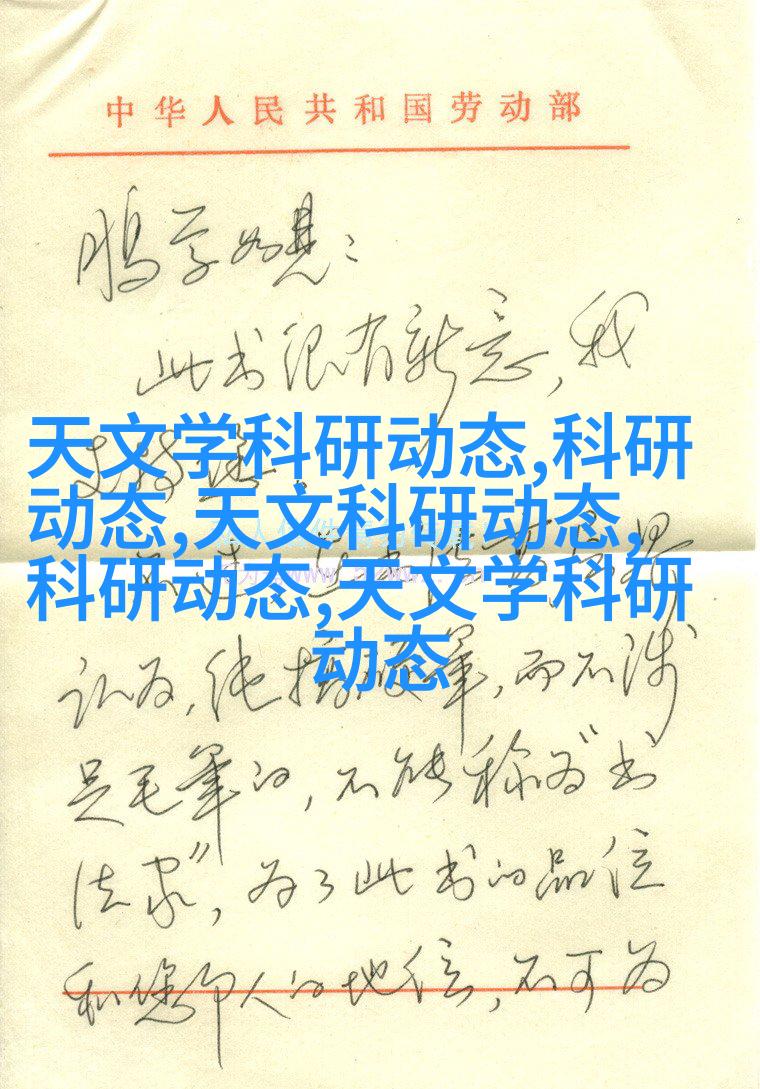 中华人民共和国劳动部
鹏学如晤：
此书很有新意，我
支持
天文学科研动态,科研
动态,天文科研动态,
科研动态,天文学科研
动态
认为，纯搞硬筆，而不涉
足毛筆的，不能称为“书
法家”，为了此书的品位
和您个人的地位，不可为